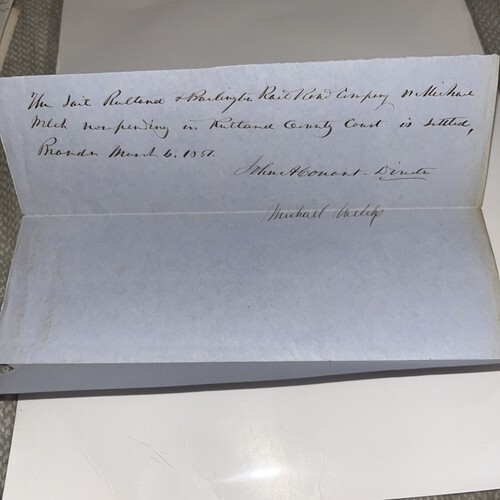 The Suit Rutland & Burlington Rail Road Company vs Michael
Welch now pending in Rutland County Court is settled,
Brandon March 6. 1851.
John A Conant - Director
Michael Welch